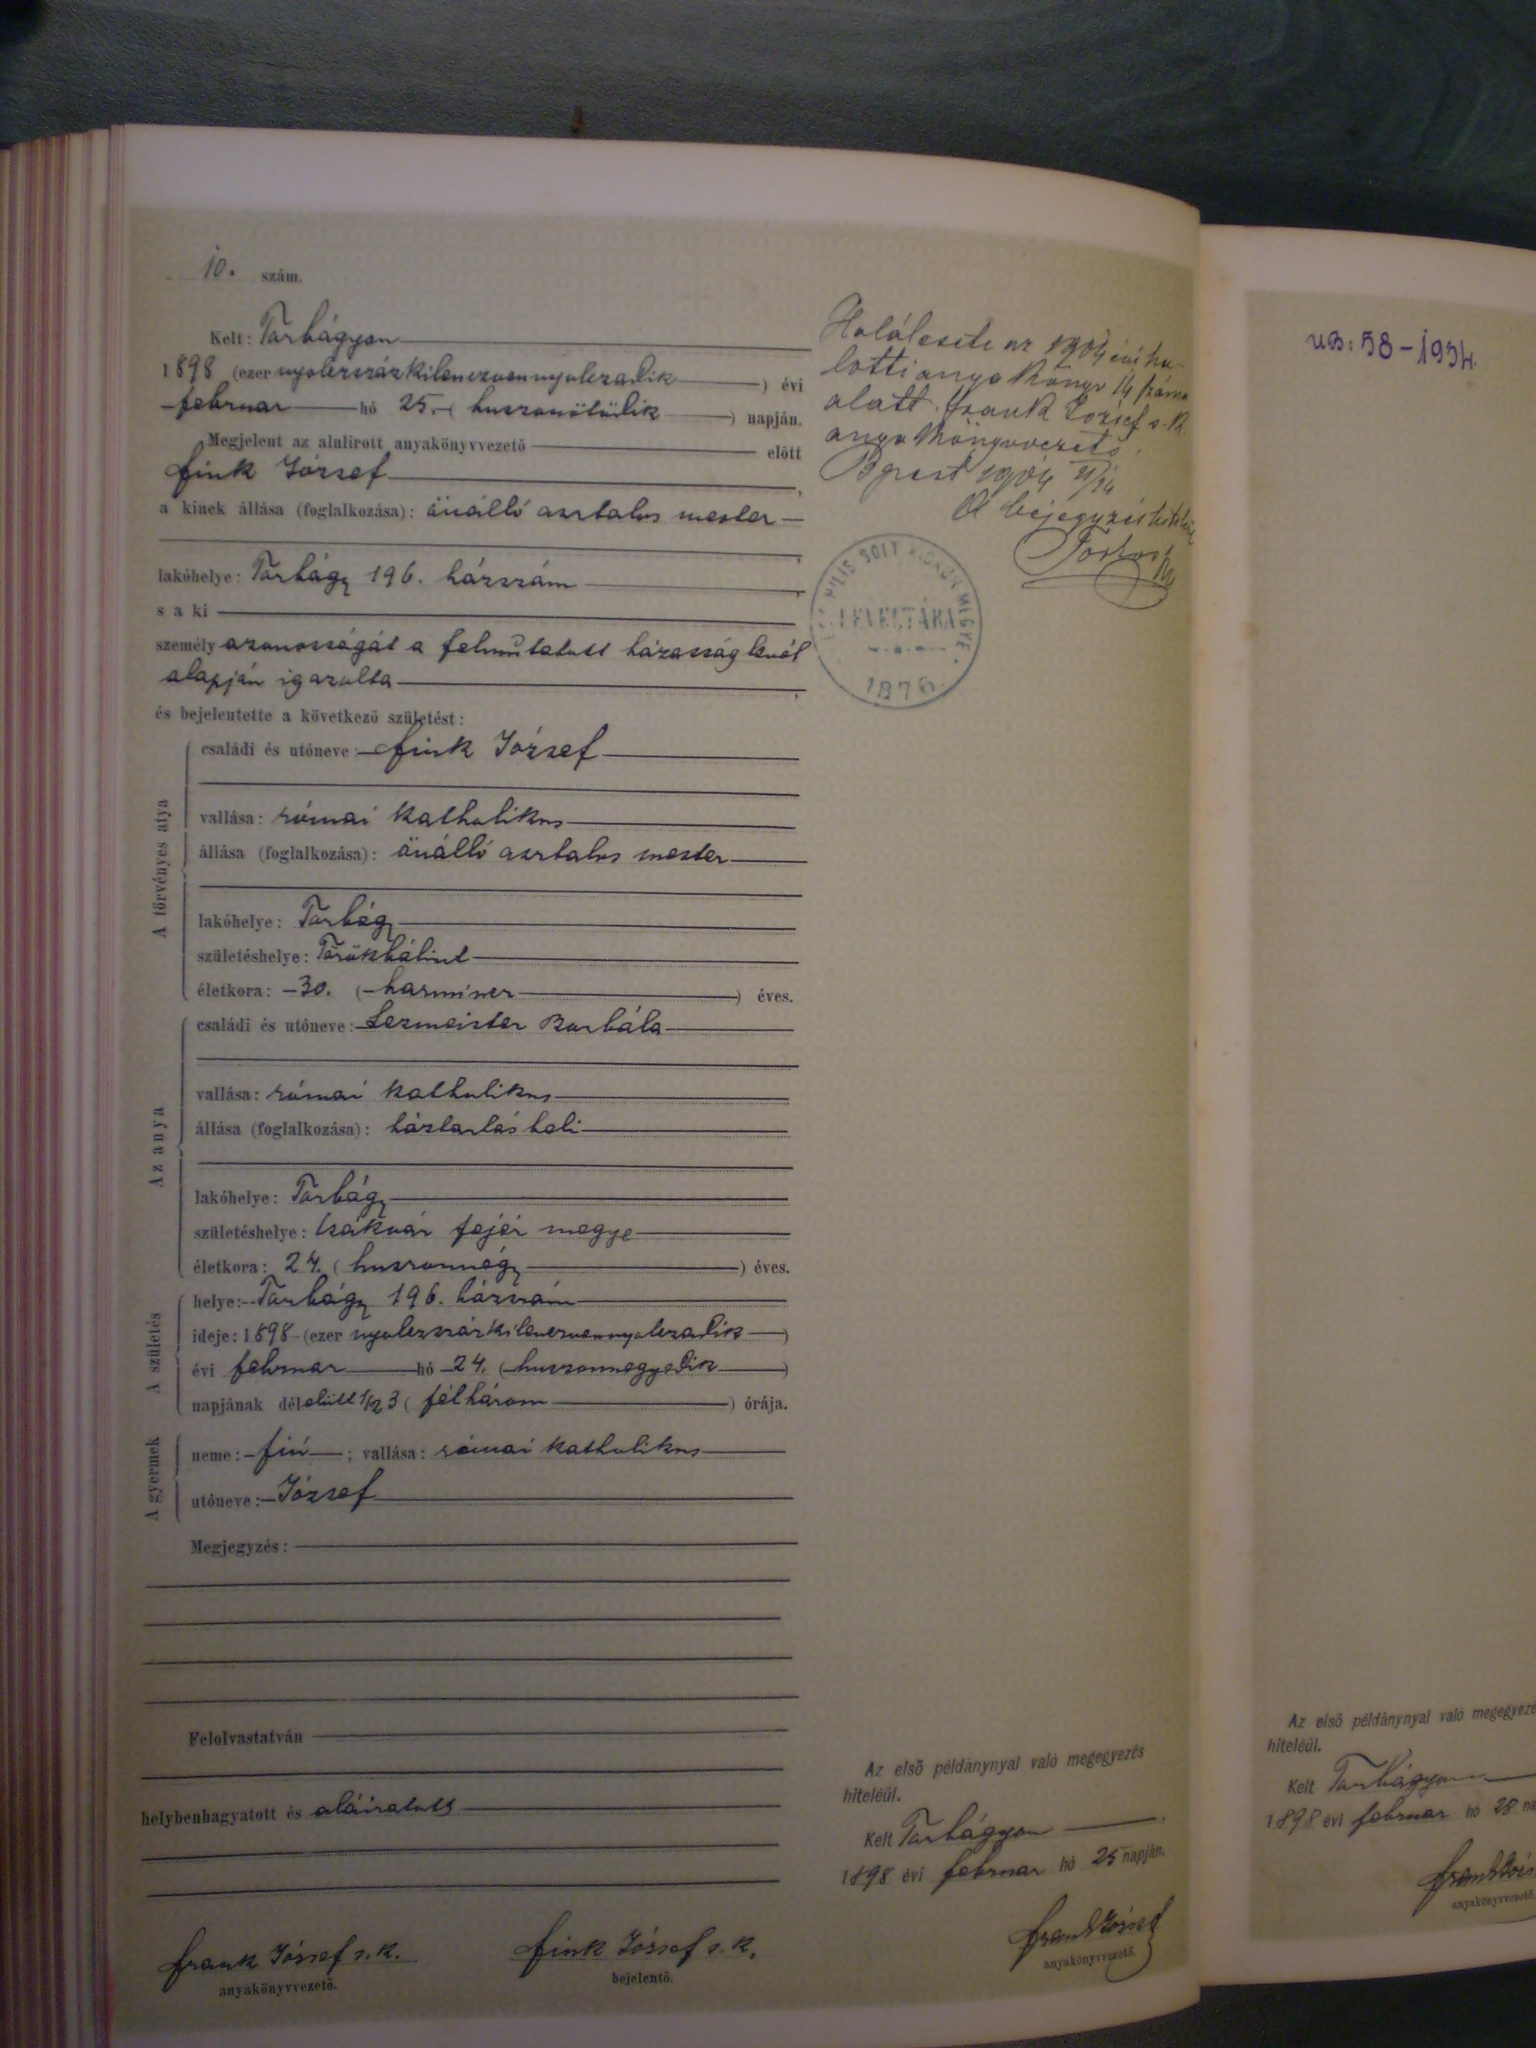 10. szám.
Kelt: Torbágyon
1898 (ezer nyolczszázkilenczvennyolczadik) évi
februar hó 25. (huszonötödik) napján.
Megjelent az alulirott anyakönyvvezető előtt
Fink József,
a kinek állása (foglalkozása): önálló asztalos mester
lakóhelye: Torbágy 196. házszám,
s a ki
személyazonosságát a felmutatott házasságlevél
alapján igazolta,
és bejelentette a következő születést:
A törvényes atya
családi és utóneve: Fink József
vallása: római katholikus
állása (foglalkozása): önálló asztalos mester
lakóhelye: Torbágy
születéshelye: Törökbálint
életkora: 30. (harmincz) éves.
Az anya
családi és utóneve: Lezmeister Borbála
vallása: római katholikus
állása (foglalkozása): háztartásbeli
lakóhelye: Torbágy
születéshelye: Csákvár fejér megye
életkora: 24. (huszonnégy) éves.
A születés
helye: Torbágy 196. házszám
ideje: 1898 (ezer nyolczszázkilenczvennyolczadik)
évi februar hó 24. (huszonnegyedik)
napjának délelőtt 1/2 3 (félhárom) órája.
A gyermek
neme: fiú; vallása: római katholikus
utóneve: József
Megjegyzés:
Felolvastatván
helybenhagyatott és aláiratott
Frank József s. k.
anyakönyvvezető.
Fink József s. k.
bejelentő.
Halálesete az 1904 évi ha-
lotti anyakönyv 14 száma
alatt. Frank József s. k.
anyakönyvvezető.
Bpest 1904
A bejegyzés hiteléül
PILIS SOLT KISKUN MEGYE
LEVELTÁRA
1876.
Az első példánynyal való megegyezés
hiteléül.
Kelt Torbágyon,
1898 évi februar hó 25 napján.
Frank József
anyakönyvvezető.
UB: 58-1934.
Az első példánynyal való megegyezé
hiteléül.
Kelt Torbágyon
1898 évi februar hó 28 na
Frank Józs
anyakönyvvezető.